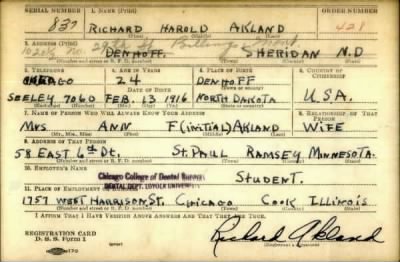 SERIAL NUMBER 1. NAME (Print) ORDER NUMBER
837 RICHARD HAROLD AKLAND 421
2. ADDRESS (Print)
1020½ No. 29th St. Billings Mont
DENHOFF SHERIDAN N.D
3. TELEPHONE 4. AGE IN YEARS 5. PLACE OF BIRTH 6. COUNTRY OF CITIZENSHIP
CHICAGO 24 DENHOFF
DATE OF BIRTH
SEELEY 7060 FEB. 13 1916 NORTH DAKOTA U.S.A.
7. NAME OF PERSON WHO WILL ALWAYS KNOW YOUR ADDRESS 8. RELATIONSHIP OF THAT PERSON
MRS ANN F(INITIAL) AKLAND WIFE
(Mr., Mrs., Miss) (First) (Middle) (Last)
9. ADDRESS OF THAT PERSON
58 EAST 6th St. ST. PAUL RAMSEY MINNESOTA
(Number and street or R. F. D. number) (Town) (County) (State)
10. EMPLOYER'S NAME
Chicago College of Dental Surgery STUDENT.
DENTAL DEPT. LOYOLA UNIVERSITY
11. PLACE OF EMPLOYMENT OR BUSINESS
1757 WEST HARRISON ST. CHICAGO COOK ILLINOIS
(Number and street or R. F. D. number) (Town) (County) (State)
I AFFIRM THAT I HAVE VERIFIED ABOVE ANSWERS AND THAT THEY ARE TRUE.
REGISTRATION CARD
D. S. S. Form 1
Richard Akland
(Registrant's signature)